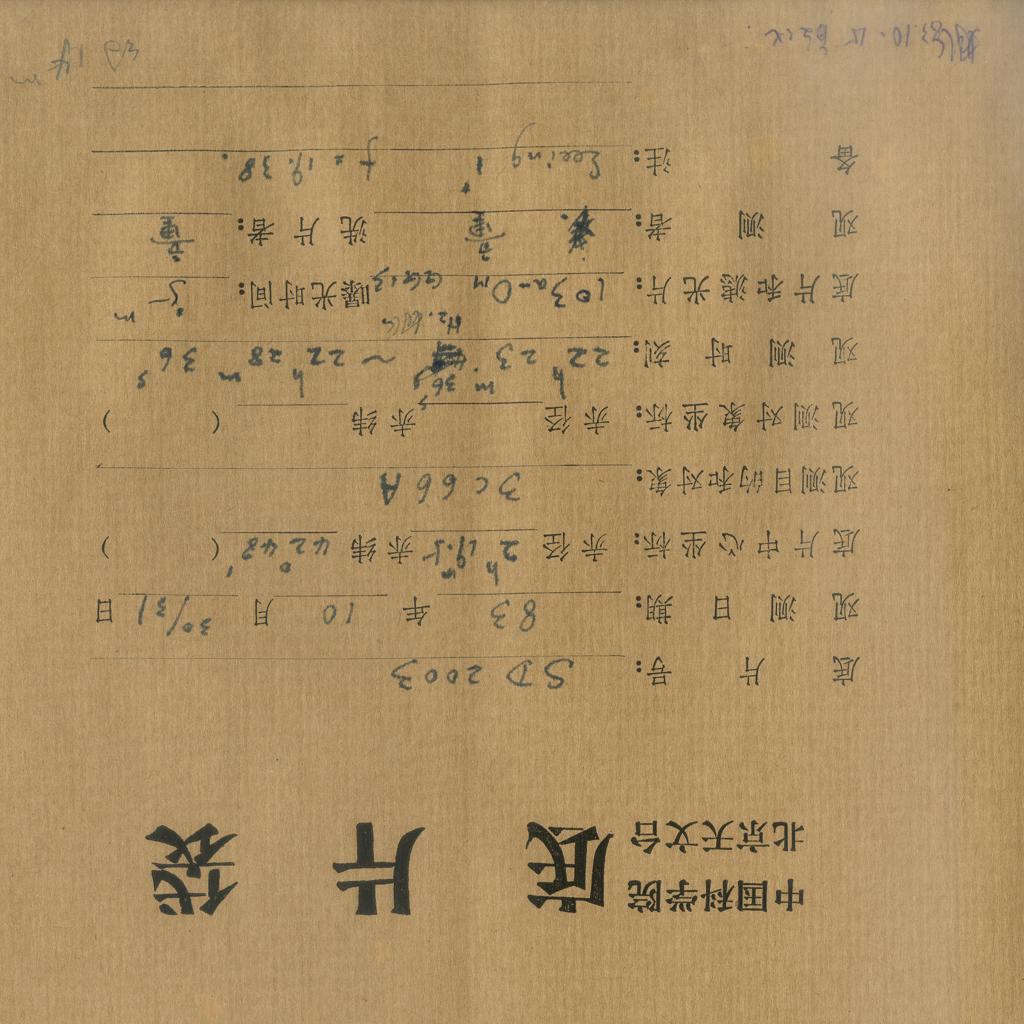 中国科学院
北京天文台
底 片 袋
底 片 号: SD 2003
观 测 日 期: 83 年 10 月 30/31 日
底片中心坐标: 赤径 2h 19m.5 赤纬 42° 48′ ( )
观测目的和对象: 3C66A
观测对象坐标: 赤径 赤纬 ( )
观 测 时 刻: 22h 23m 36s ~ 22h 28m 36s
底片和滤光片: 103a-O GG13 曝光时间: 5m
观 测 者: 洗 片 者:
备 注: Seeing 1 f = 19.38